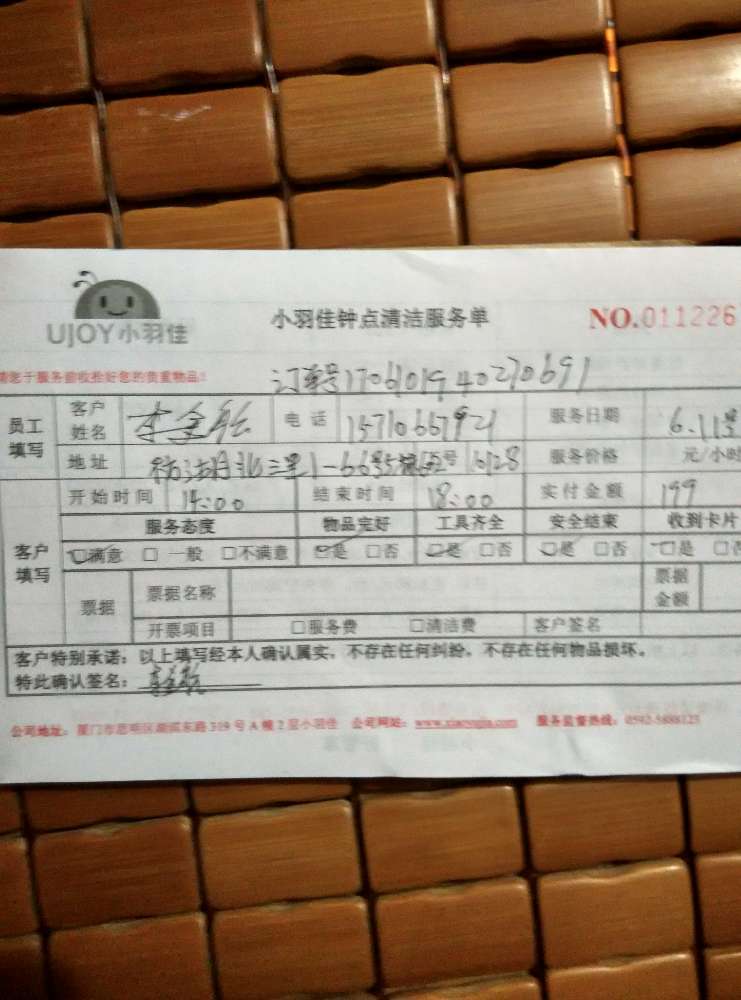 UJOY小羽佳
小羽佳钟点清洁服务单
NO.011226
请您于服务前收拾好您的贵重物品!
订单号
员工填写
客户姓名
电话
服务日期 6.11号
地址
服务价格 元/小时
客户填写
开始时间 14:00 结束时间 18:00 实付金额 199
服务态度 物品完好 工具齐全 安全结束 收到卡片
☑满意 □一般 □不满意 ☑是 □否 ☑是 □否 ☑是 □否 ☑是 □否
票据
票据名称
票据金额
开票项目 □服务费 □清洁费 客户签名
客户特别承诺：以上填写经本人确认属实，不存在任何纠纷，不存在任何物品损坏。
特此确认签名：
公司地址：厦门市思明区湖滨东路319号A幢2层小羽佳 公司网站：www.xiaoyujia.com 服务监督热线：